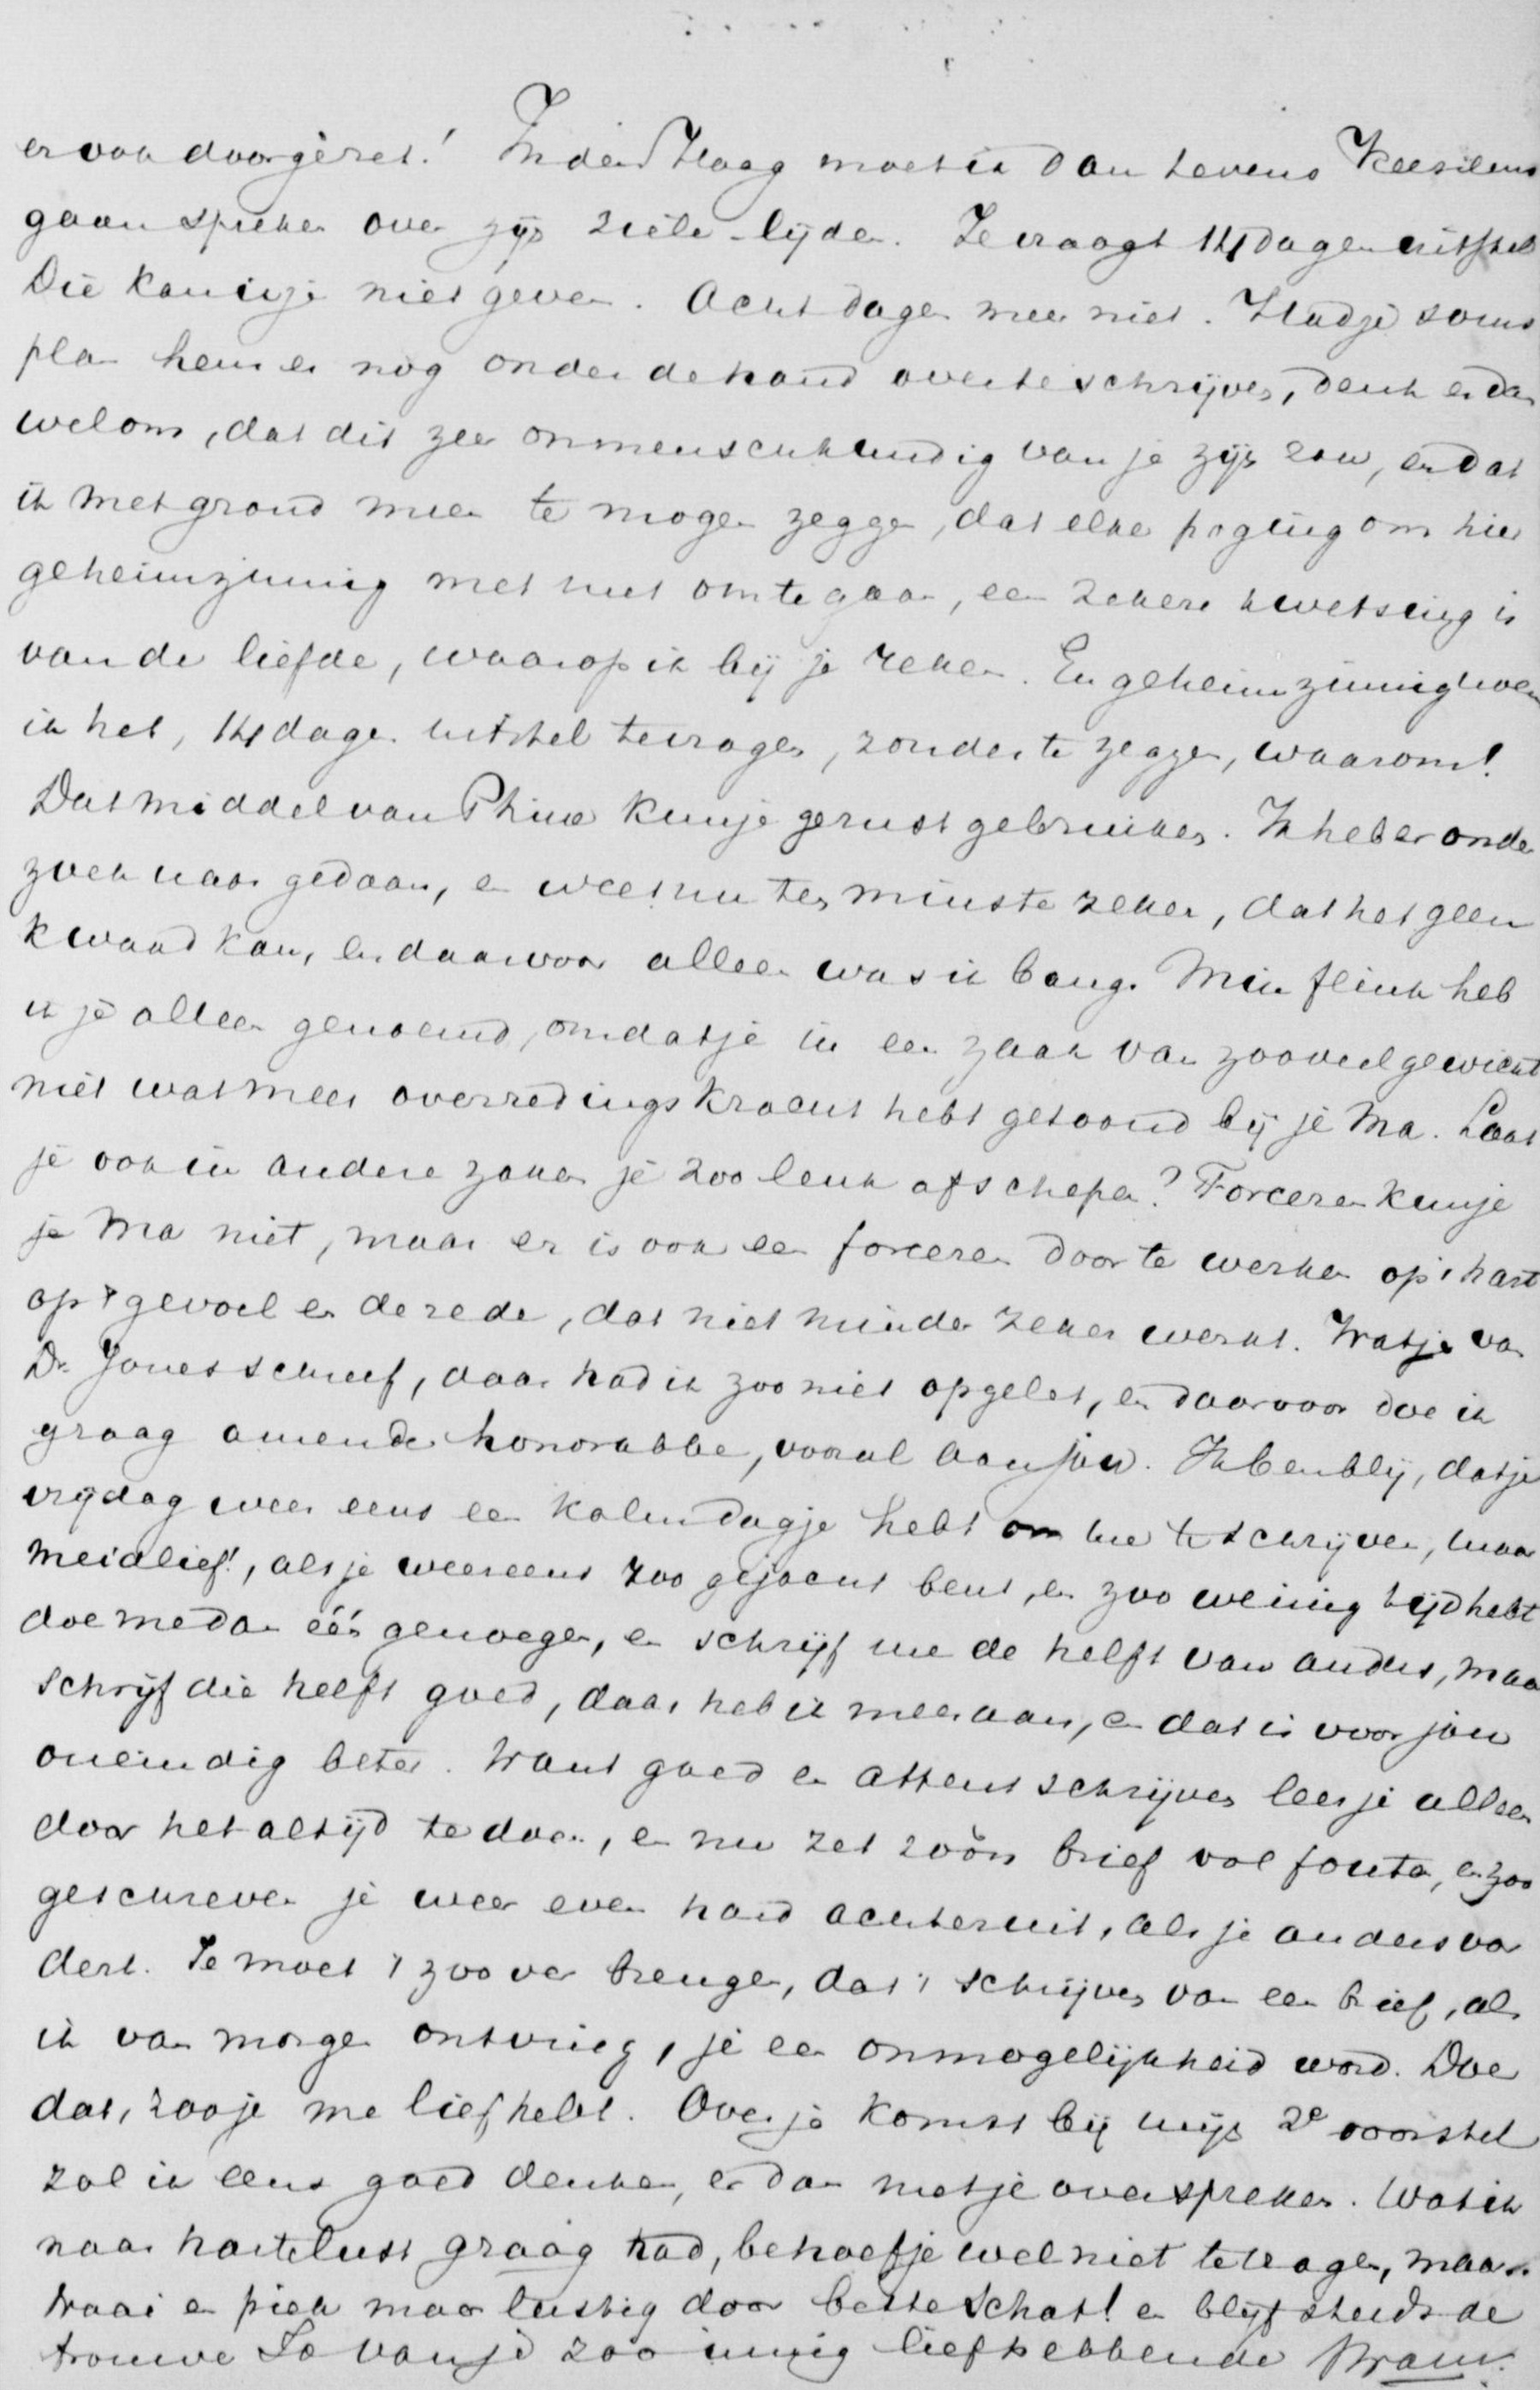 er ook doorgèret! In den Haag moet ik dan tevens
gaan spreken over zijn ziele-lijden. Je vraagt 14 dagen uitstel
Die kan ik je niet geven. Acht dagen meer niet. Hadje soms
plan hem er nog onder de hand over te schrijven, denk er dan
wel om, dat dit zeer onmenschkundig van je zijn zou, en dat
ik met grond meen te mogen zeggen, dat elke poging om hier
geheimzinnig met het om te gaan, een zekere kwetsing is
van de liefde, waarop ik bij je reken. En geheimzinnig
ik het, 14 dagen uitstel te vragen, zonder te zeggen, waarom!
Dat middel van Phine kun je gerust gebruiken. Ik heb er onder
zoek naar gedaan, en weet nu ten minste zeker, dat het geen
kwaad kan, en daarvoor alleen was ik bang. Min flink heb
ik je alleen genoemd, omdat je in een zaak van zooveel gewicht
niet wat meer overredingskracht hebt getoond bij je Ma. Laat
je ook in andere zaken je zoo leuk afschepen? Forceren kun je
je Ma niet, maar er is ook een forceren door te werken op 't hart
op 't gevoel en de rede, dat niet minder zeker werkt. Wat je van
Dr. Jones schreef, daar had ik zoo niet opgelet, en daarvoor doe ik
graag amende honorabbe, vooral aan jou. Ik ben blij, dat je
vrijdag weer eens een kalm dagje hebt om me te schrijven, maar
meidlief!, als je weer eens zoo gejacht bent, en zoo weinig tijd hebt
doe me dan één genoegen, en schrijf me de helft van anders, maar
schrijf die helft goed, daar heb ik meer aan, en dat is voor jou
oneindig beter. Want goed en attent schrijven leer je alleen
door het altijd te doen, en nu zet zóón brief vol fouten, en zoo
geschreven je weer even hard achteruit, als je anders vor
dert. Je moet 't zoo ver brengen, dat 't schrijven van een brief, als
ik van morgen ontving, je een onmogelijkheid word. Doe
dat, zoo je me liefhebt. Over je komst bij mijn 2e voorstel
zal ik eens goed denken, en dan met je overspreken. Wat ik
naar hartelust graag had, behoef je wel niet te vragen, maar
en piek maar lustig door beste Schat! en blijf steeds de
trouwe Lo van je zoo innig liefhebbende Bram.